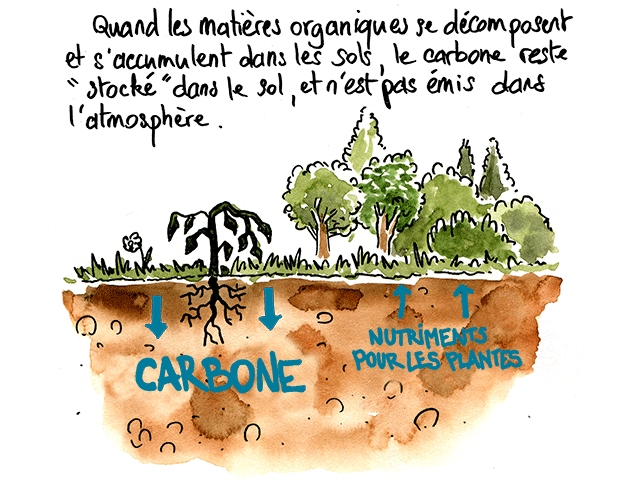 Quand les matières organiques se décomposent
et s'accumulent dans les sols, le carbone reste
"stocké" dans le sol, et n'est pas émis dans
l'atmosphère.
NUTRIMENTS
POUR LES PLANTES
CARBONE